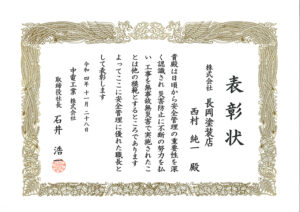 表彰状
株式会社 長岡塗装店
西村 純一 殿
貴殿は日頃から安全管理の重要性を深
く認識され 災害防止に不断の努力を払
い 工事を無事故無災害で実施されたこ
とは他の模範とするところであります
よってここに安全管理に優れた職長と
して表彰します
令和四年十一月二十八日
中電工業 株式会社
取締役社長 石井 浩一